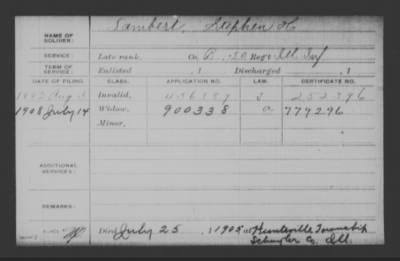 Lambert, Stephen H
NAME OF SOLDIER:
SERVICE: Late rank Co. B, 50 Reg't Ill Inf
TERM OF SERVICE: Enlisted , 1 Discharged , 1
DATE OF FILING. CLASS. APPLICATION NO. LAW. CERTIFICATE NO.
Aug Invalid,
1908 July 14 Widow, 900338 a 779296
Minor,
ADDITIONAL SERVICES:
REMARKS:
Died July 25, 1905 at Huntsville Township
Schuyler Co. Ill.